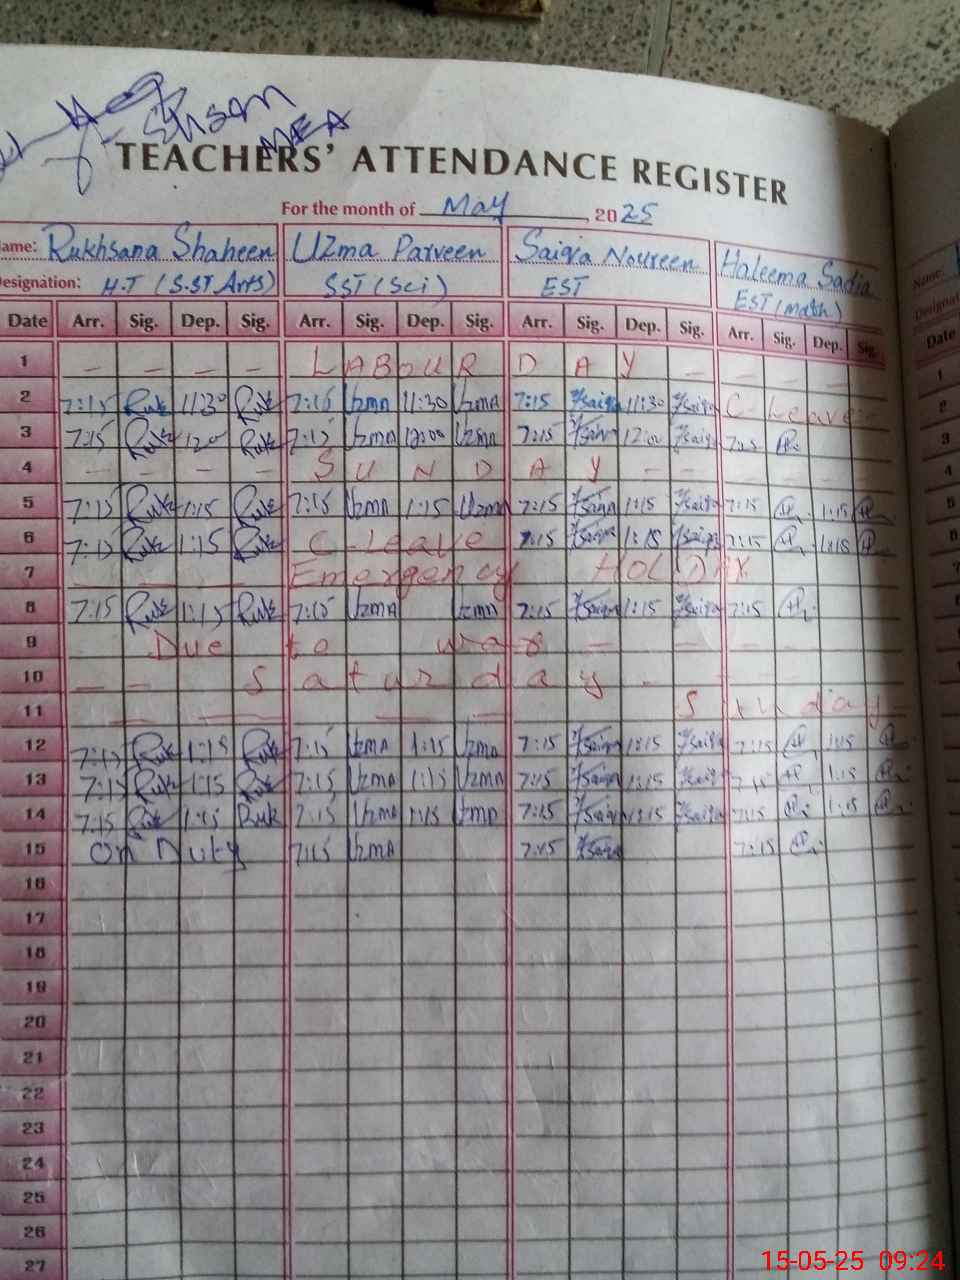 Ehsan
MEA
TEACHERS' ATTENDANCE REGISTER
For the month of May, 2025
ame: Rukhsana Shaheen Uzma Parveen Saiqra Noureen Haleema Sadia
Designation: H.T (S.ST Arts) SST (Sci) EST EST (math)
Date Arr. Sig. Dep. Sig. Arr. Sig. Dep. Sig. Arr. Sig. Dep. Sig. Arr. Sig. Dep. Sig.
1 LABOUR DAY
2 7:15 Ruk 11:30 Ruk 7:15 Uzma 11:30 Uzma 7:15 Saiqa 11:30 Saiqa C-Leave
3 7:15 Ruk 1200 Ruk 7:15 Uzma 12:00 Uzma 7:15 12:00 Saiqa
4 SUNDAY
5 7:15 Ruk 1:15 Ruk 7:15 Uzma 1:15 Uzma 7:15 Saiqa 1:15 Saiqa 7:15 1:15
6 7:15 Ruk 1:15 Ruk C-Leave 7:15 Saiqa 1:15 Saiqa 7:15 1:15
7 Emergency HOLIDAY
8 7:15 Ruk 1:15 Ruk 7:15 Uzma Uzma 7:15 Saiqa 1:15 Saiqa 7:15
9 Due to war
10 Saturday
11 Sunday
12 7:15 Ruk 1:15 Ruk 7:15 Uzma 1:15 Uzma 7:15 Saiqa 1:15 Saiqa 7:15 1:15
13 7:15 Ruk 1:15 Ruk 7:15 Uzma 1:15 Uzma 7:15 Saiqa 1:15 Saiqa 7:15 1:15
14 7:15 Ruk 1:15 Ruk 7:15 Uzma 1:15 Uzma 7:15 Saiqa 1:15 Saiqa 7:15 1:15
15 On Duty 7:15 Uzma 7:15 Saiqa 7:15
16
17
18
19
20
21
22
23
24
25
26
27
Name:
Designat
Date
1
2
3
4
5
6
7
15-05-25 09:24